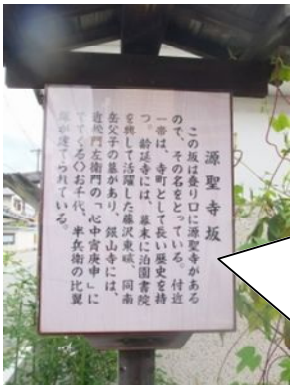 源聖寺坂
この坂は登り口に源聖寺がある
ので、その名をとっている。付近
一帯は、寺町として長い歴史を持
つ。齢延寺には、幕末に泊園書院
を興して活躍した藤沢東畡、同南
岳父子の墓があり、銀山寺には、
近松門左衛門の「心中宵庚申」に
でてくるお千代、半兵衛の比翼
塚が建てられている。